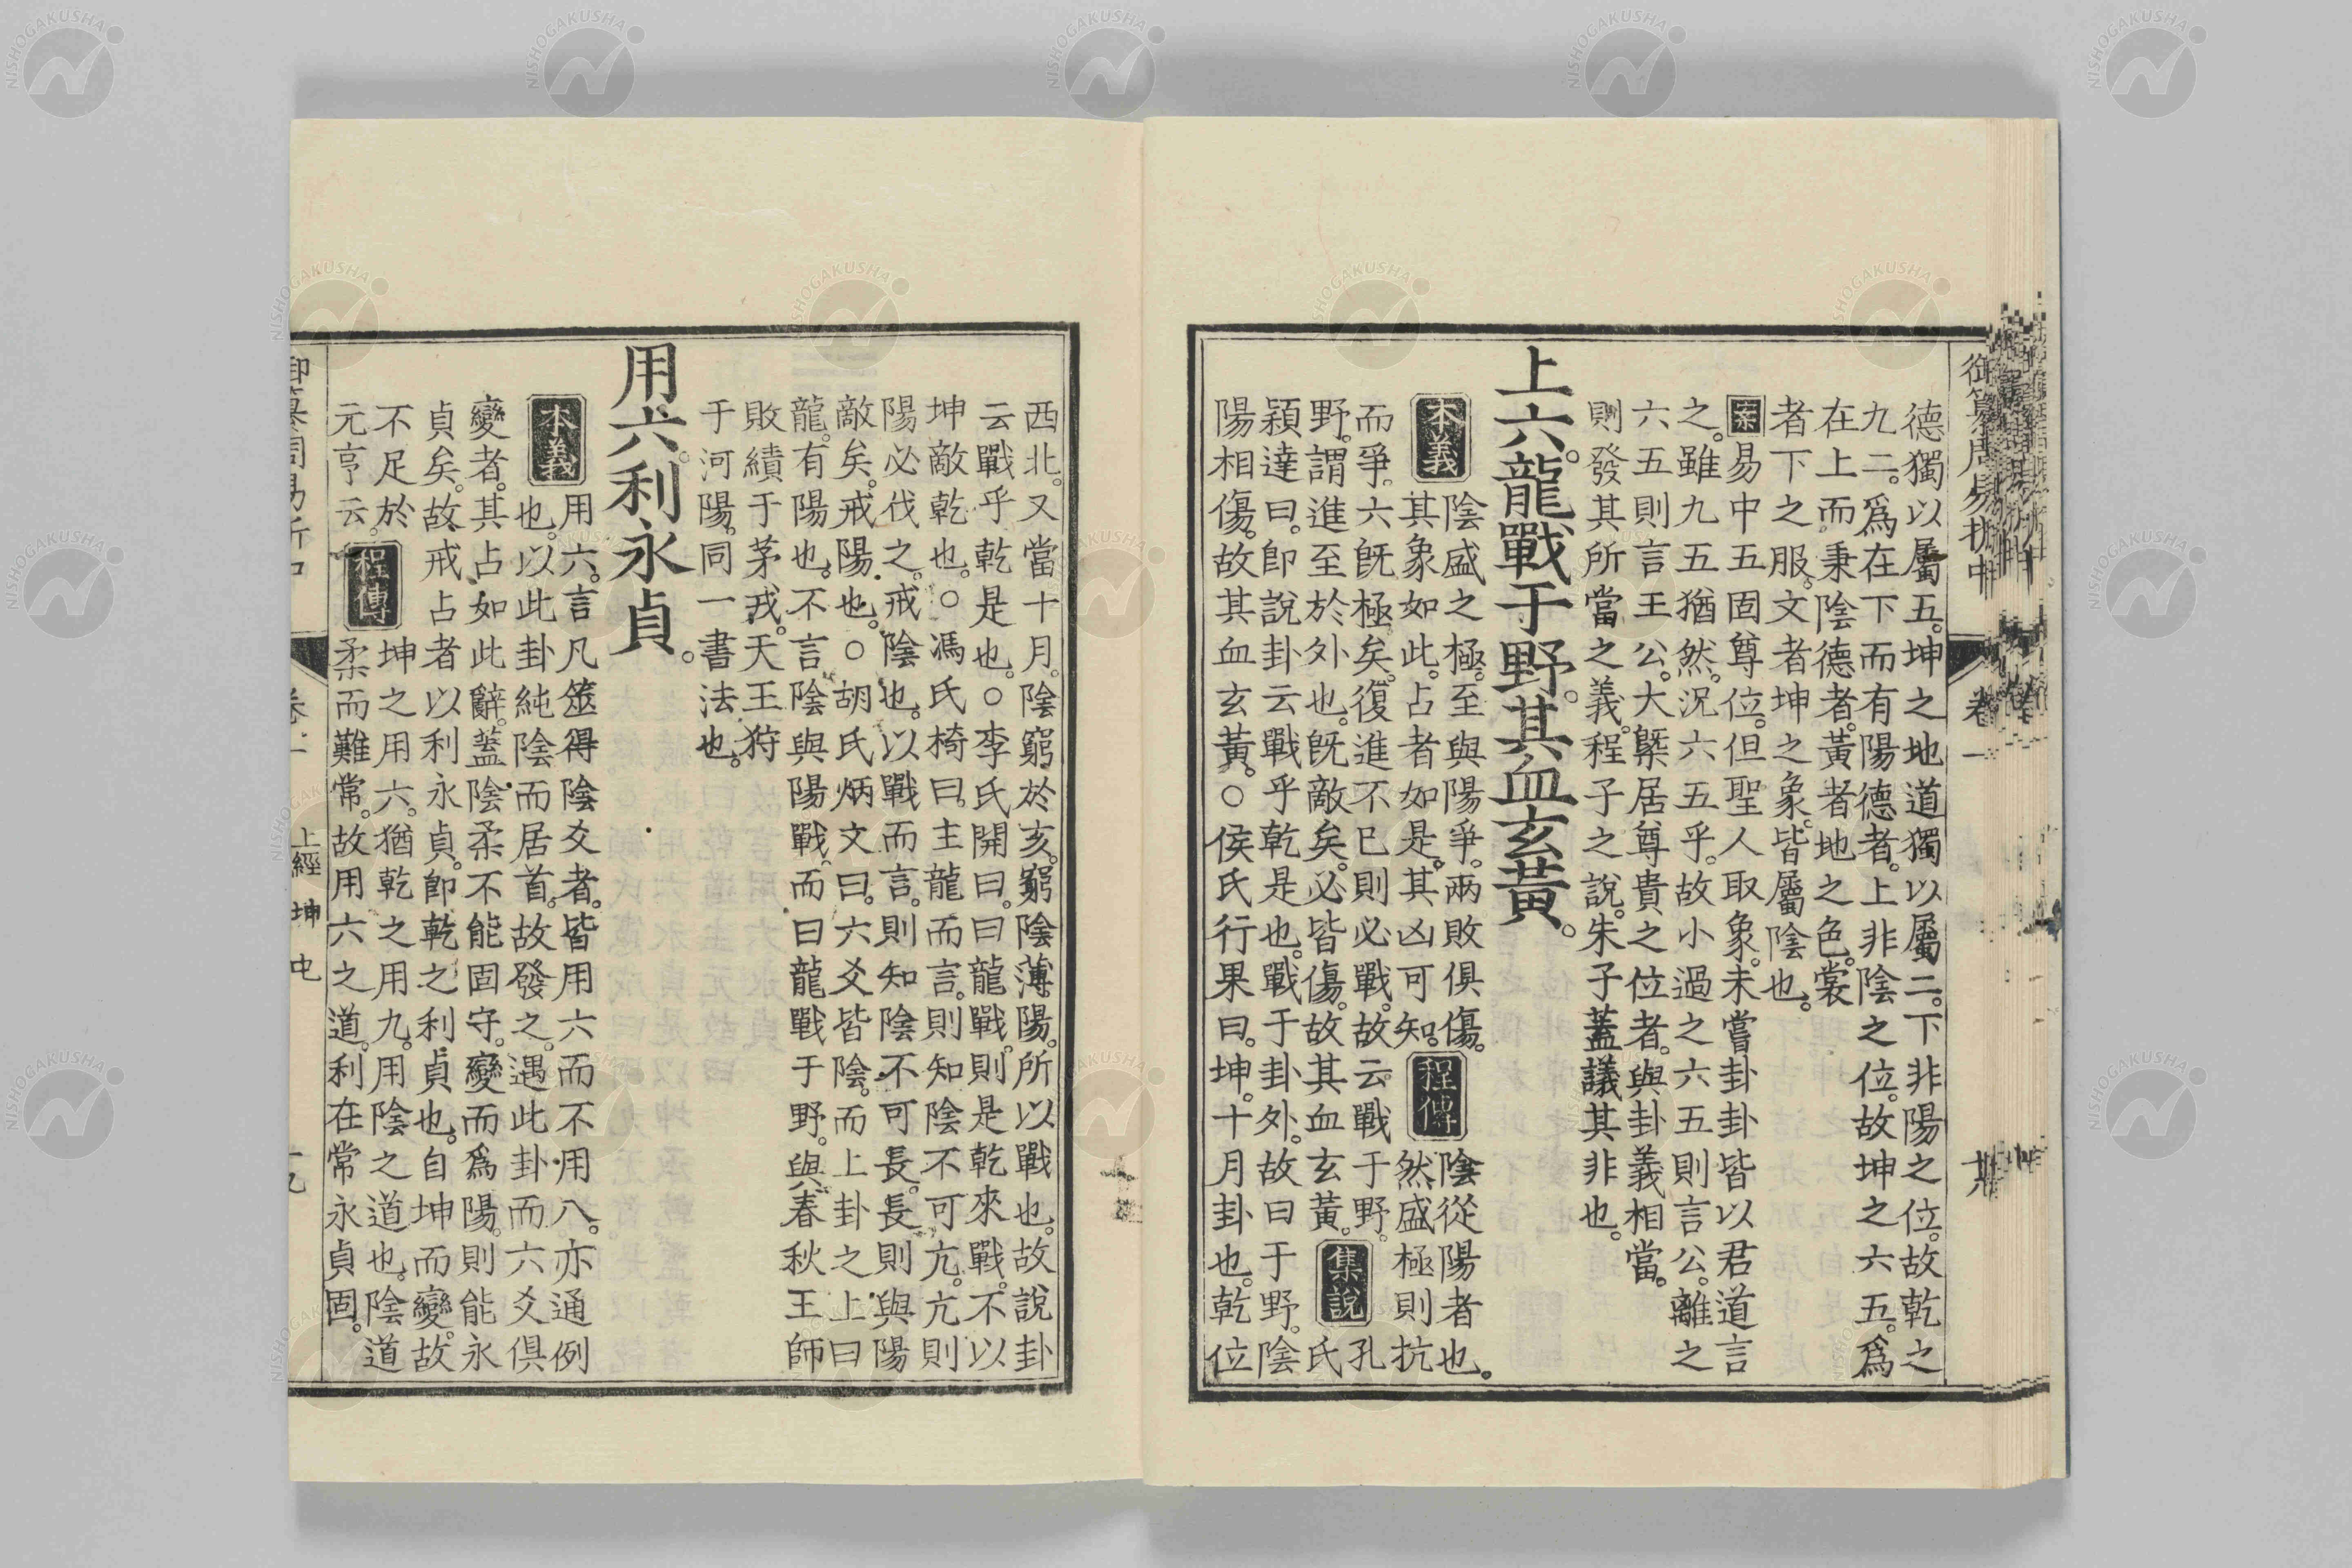 御纂周易折中
卷一
德獨以屬五。坤之地道獨以屬二。下非陽之位。故乾之
九二。爲在下而有陽德者。上非陰之位。故坤之六五。爲
在上而秉陰德者。黃者地之色。裳
者下之服。文者坤之象。皆屬陰也。
案易中五固尊位。但聖人取象。未嘗卦卦皆以君道言
之。雖九五猶然。況六五乎。故小過之六五則言公。離之
六五則言王公。大槩居尊貴之位者。與卦義相當。
則發其所當之義。程子之說。朱子蓋議其非也。
上六。龍戰于野。其血玄黃。
本義
陰盛之極。至與陽爭。兩敗俱傷。
其象如此。占者如是。其凶可知。
程傳
陰從陽者也。
然盛極則抗
而爭。六旣極矣。復進不已則必戰。故云戰于野。
野。謂進至於外也。旣敵矣。必皆傷。故其血玄黃。
集說
孔
氏
穎達曰。卽說卦云戰乎乾是也。戰于卦外。故曰于野。陰
陽相傷。故其血玄黃。○侯氏行果曰。坤。十月卦也。乾位
西北。又當十月。陰窮於亥。窮陰薄陽。所以戰也。故說卦
云戰乎乾是也。○李氏開曰。曰龍戰。則是乾來戰。不以
坤敵乾也。○馮氏椅曰。主龍而言。則知陰不可亢。亢則
陽必伐之。戒陰也。以戰而言。則知陰不可長。長則與陽
敵矣。戒陽也。○胡氏炳文曰。六爻皆陰。而上卦之上曰
龍。有陽也。不言陰與陽戰。而曰龍戰于野。與春秋王師
敗績于茅戎。天王狩
于河陽。同一書法也。
用六。利永貞。
本義
用六。言凡筮得陰爻者。皆用六而不用八。亦通例
也。以此卦純陰而居首。故發之。遇此卦而六爻俱
變者。其占如此辭。蓋陰柔不能固守。變而爲陽。則能永
貞矣。故戒占者以利永貞。卽乾之利貞也。自坤而變。故
不足於
元亨云。
程傳
坤之用六。猶乾之用九。用陰之道也。陰道
柔而難常。故用六之道。利在常永貞固。
上經 坤 屯